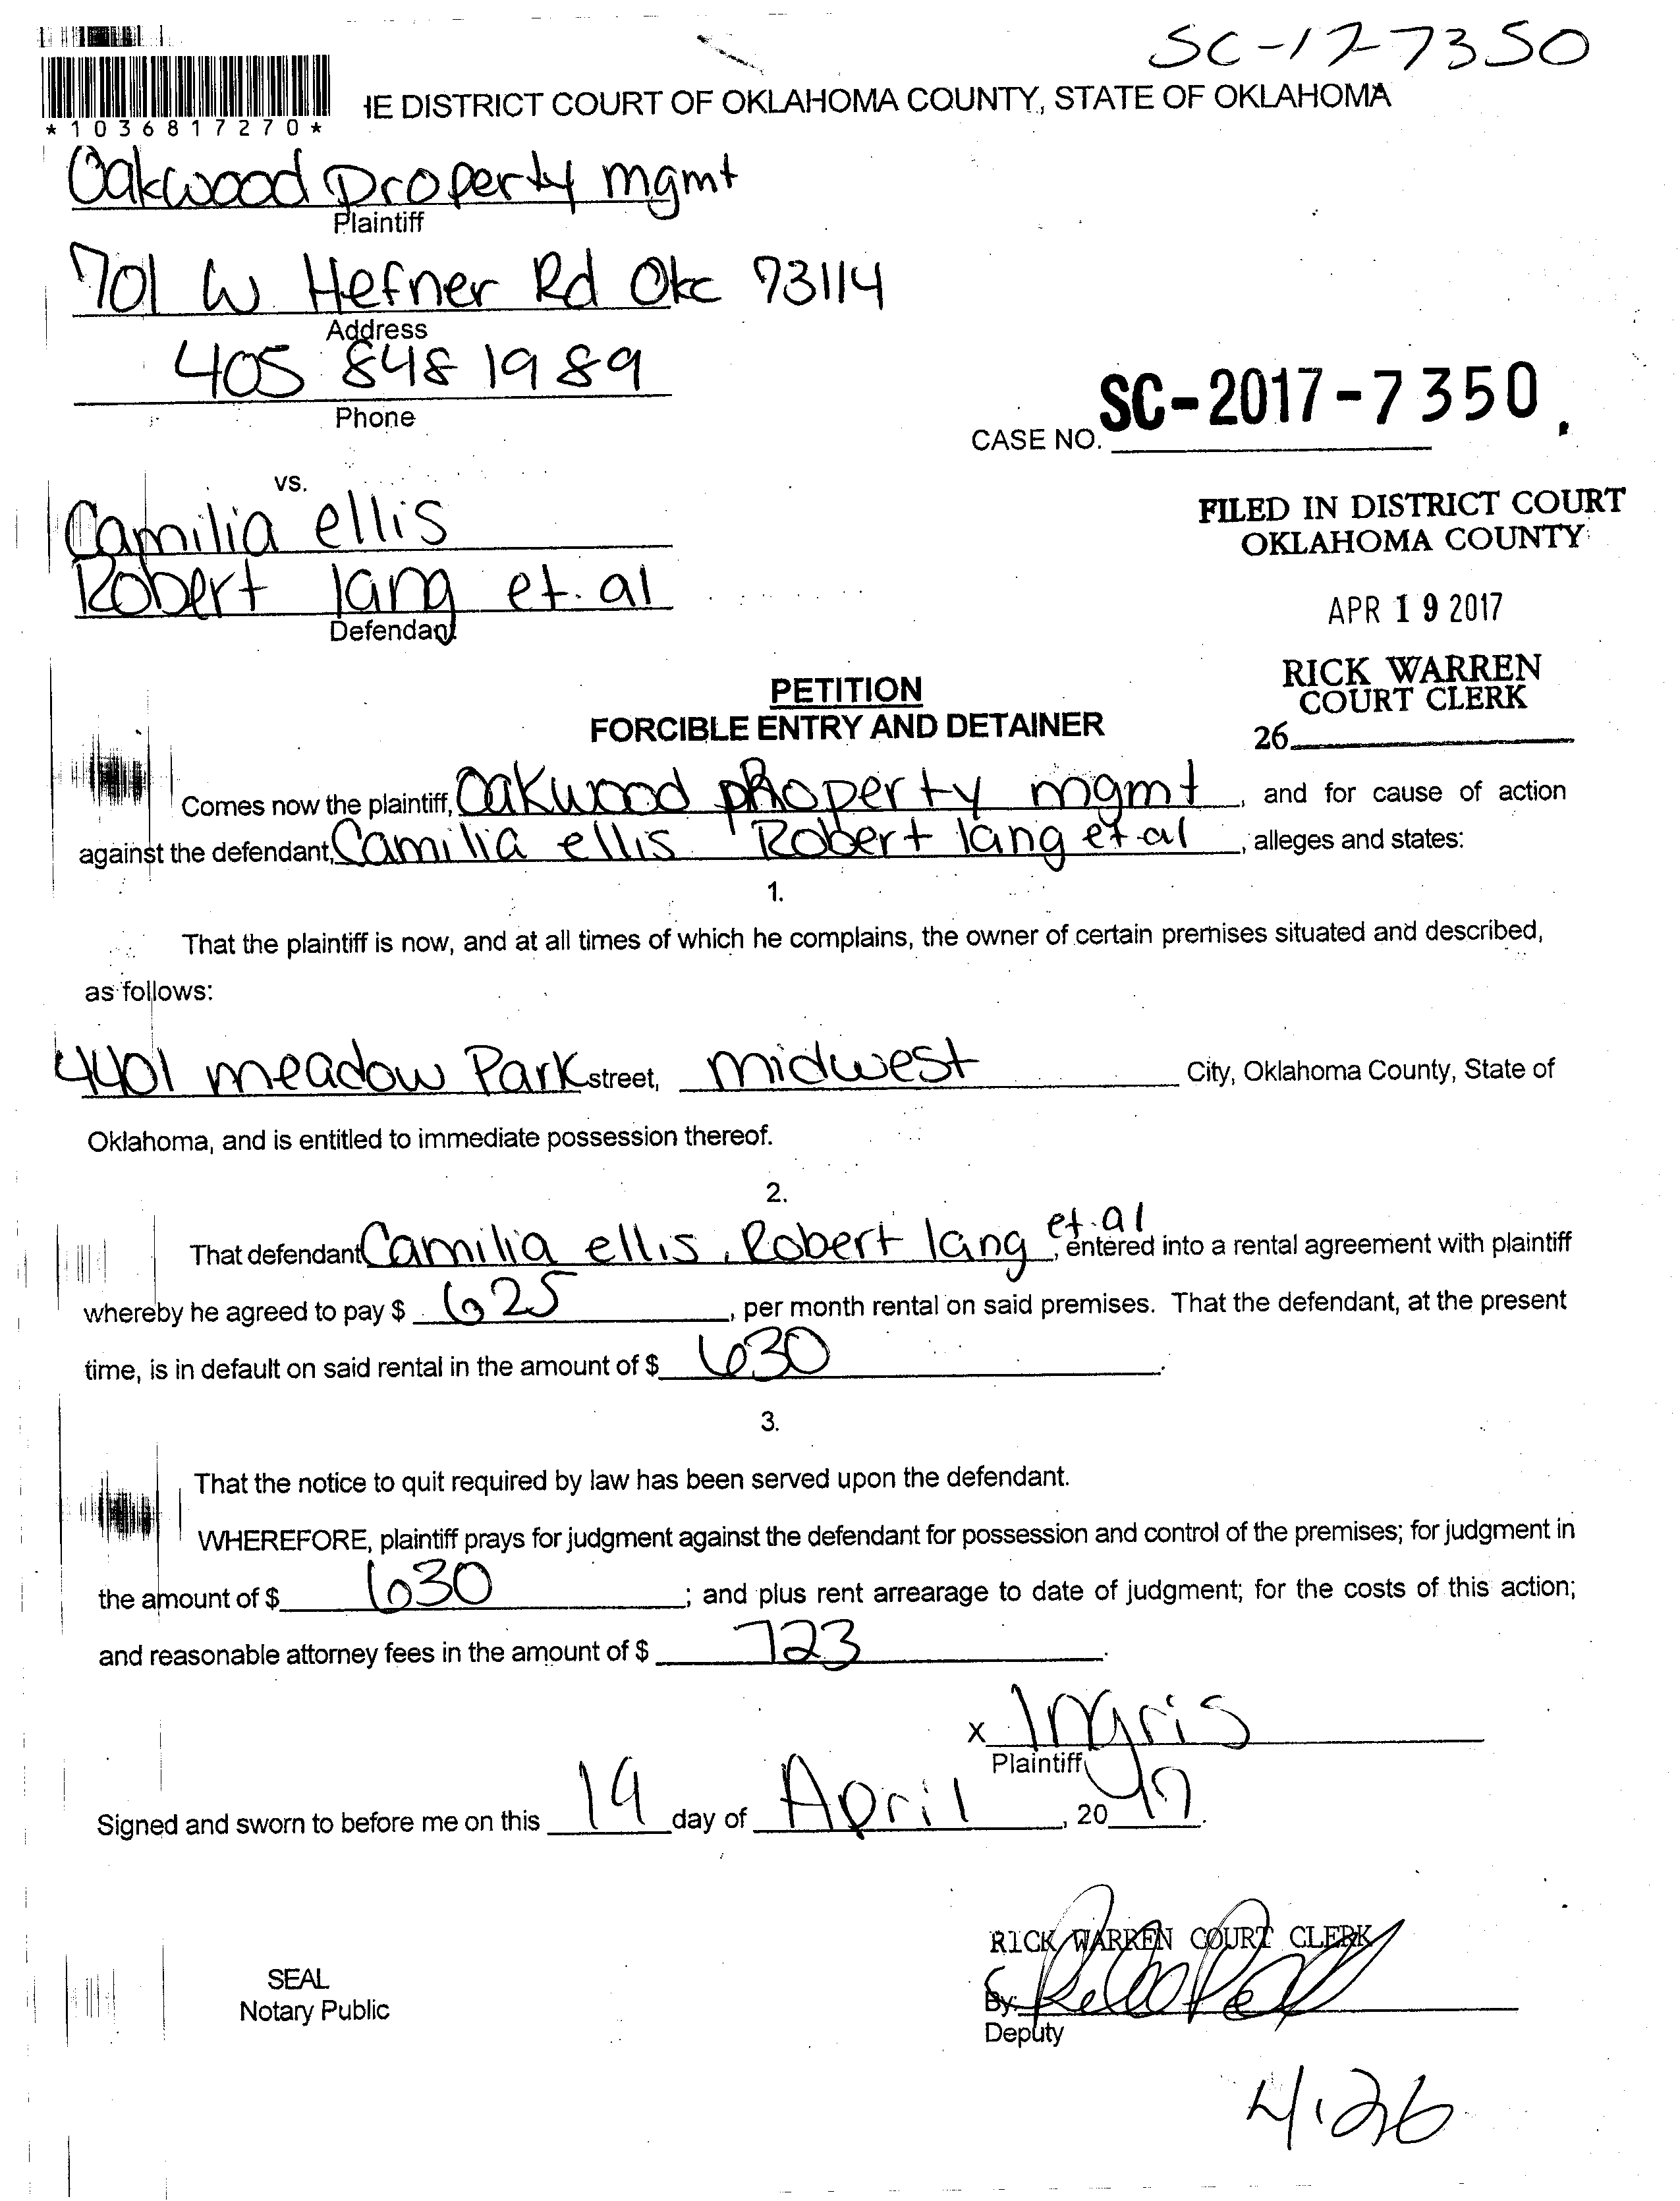 SC-17-7350
*1036817270*
IE DISTRICT COURT OF OKLAHOMA COUNTY, STATE OF OKLAHOMA
Oakwood Property mgmt
Plaintiff
701 W Hefner Rd Okc 73114
Address
405 848 1989
Phone
SC-2017-7350
CASE NO.
vs.
Camilia ellis
Robert lang et. al
Defendant
FILED IN DISTRICT COURT
OKLAHOMA COUNTY
APR 19 2017
RICK WARREN
COURT CLERK
26
PETITION
FORCIBLE ENTRY AND DETAINER
Comes now the plaintiff, Oakwood property mgmt, and for cause of action
against the defendant, Camilia ellis Robert lang et al, alleges and states:
1.
That the plaintiff is now, and at all times of which he complains, the owner of certain premises situated and described,
as follows:
4401 meadow Park street, midwest City, Oklahoma County, State of
Oklahoma, and is entitled to immediate possession thereof.
2.
That defendant Camilia ellis, Robert lang et. al, entered into a rental agreement with plaintiff
whereby he agreed to pay $ 625, per month rental on said premises. That the defendant, at the present
time, is in default on said rental in the amount of $ 630.
3.
That the notice to quit required by law has been served upon the defendant.
WHEREFORE, plaintiff prays for judgment against the defendant for possession and control of the premises; for judgment in
the amount of $ 630; and plus rent arrearage to date of judgment; for the costs of this action;
and reasonable attorney fees in the amount of $ 723.
x Ingris
Plaintiff
Signed and sworn to before me on this 19 day of April, 2017.
RICK WARREN COURT CLERK
SEAL
Notary Public
By:
Deputy
4.26